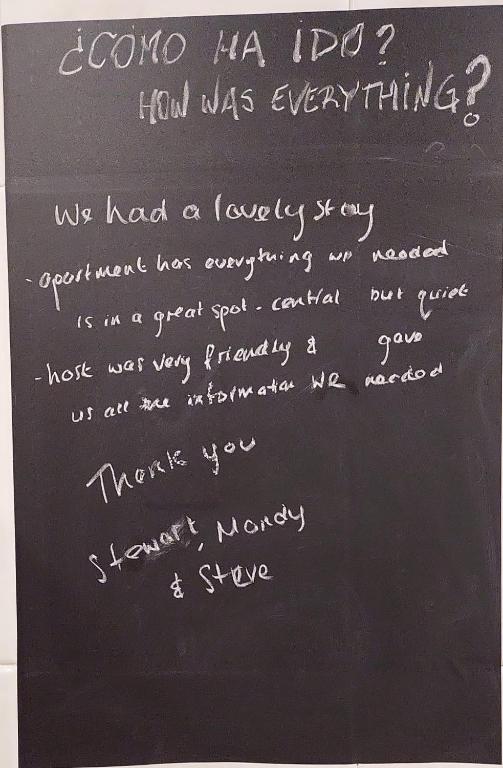 ¿COMO HA IDO?
HOW WAS EVERYTHING?
We had a lovely stay
- apartment has everything we needed
is in a great spot - central but quiet
- host was very friendly & gave
us all the information we needed
Thank you
Stewart, Mandy
& Steve